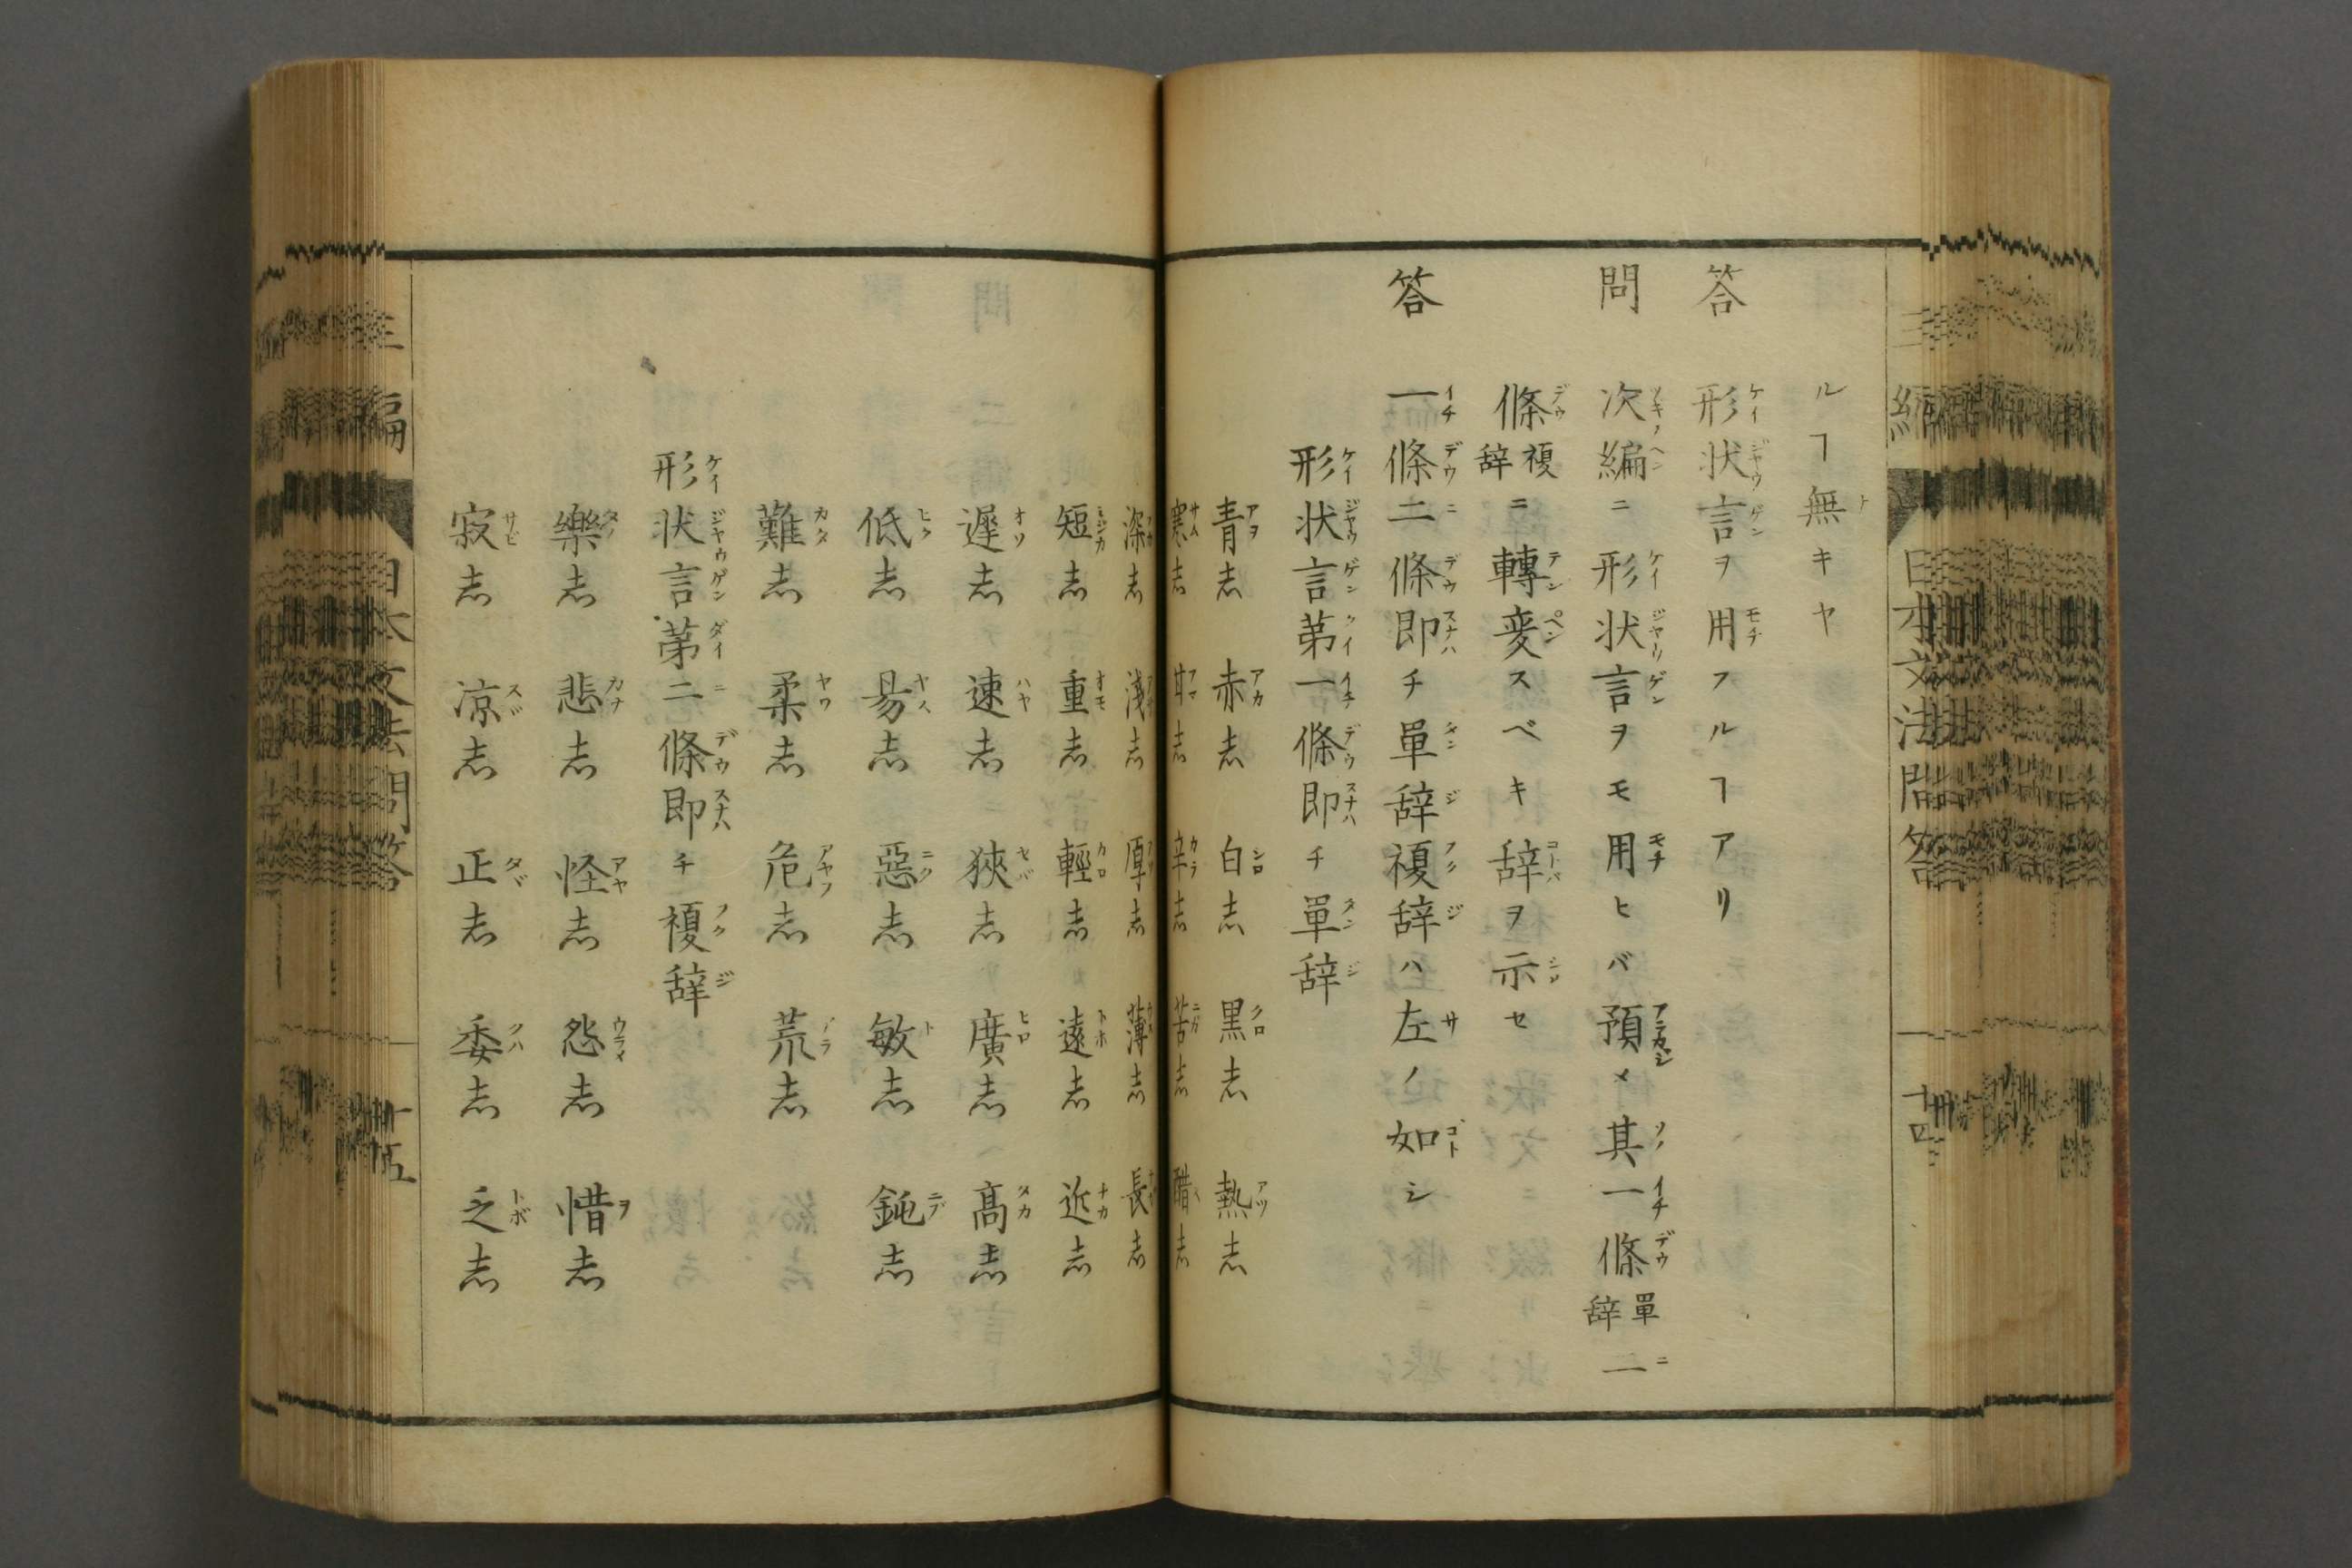 ルヿ無キヤ
答 形状言ヲ用フルヿアリ
問 次編ニ形状言ヲモ用ヒバ預メ其一條單辞二
條複辞ニ轉変スベキ辞ヲ示セ
答 一條二條即チ單辞複辞ハ左ノ如シ
形状言第一條即チ單辞
青志 赤志 白志 黒志 熱志
寒志 甘志 辛志 苦志 醋志
深志 淺志 厚志 薄志 長志
短志 重志 輕志 遠志 近志
遲志 速志 狹志 廣志 髙志
低志 易志 惡志 敏志 鈍志
難志 柔志 危志 荒志
形状言第二條即チ複辞
樂志 悲志 怪志 怨志 惜志
寂志 凉志 正志 委志 乏志
編 日本文法問答 十四
編 日本文法問答 十五